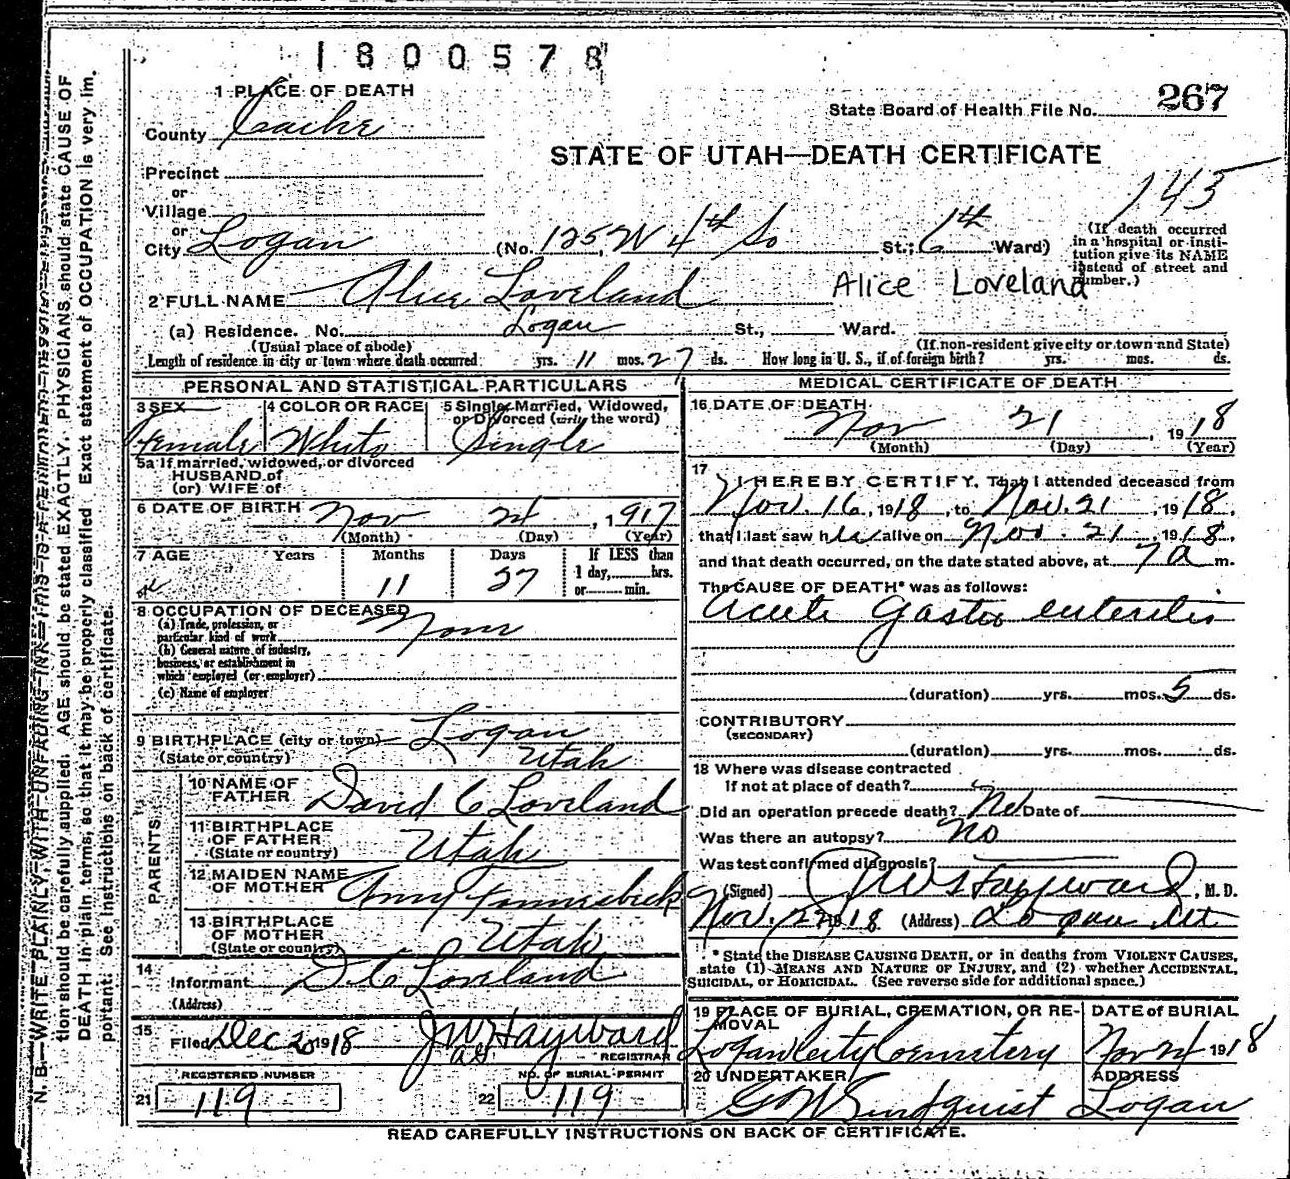 1800578
1 PLACE OF DEATH
267
State Board of Health File No.
County Cache
STATE OF UTAH—DEATH CERTIFICATE
Precinct
or
145
Village
or
City Logan (No. 125 W 4th So St.; 6th Ward)
(If death occurred in a hospital or institution give its NAME instead of street and number.)
2 FULL NAME Alice Loveland Alice Loveland
(a) Residence. No. Logan St., Ward.
(Usual place of abode) (If non-resident give city or town and State)
Length of residence in city or town where death occurred yrs. 11 mos. 27 ds. How long in U. S., if of foreign birth? yrs. mos. ds.
PERSONAL AND STATISTICAL PARTICULARS
3 SEX Female
4 COLOR OR RACE White
5 Single, Married, Widowed, or Divorced (write the word) Single
5a If married, widowed, or divorced
HUSBAND of
(or) WIFE of
6 DATE OF BIRTH Nov 24, 1917
(Month) (Day) (Year)
7 AGE Years Months Days If LESS than
11 27 1 day, hrs.
or min.
8 OCCUPATION OF DECEASED
(a) Trade, profession, or
particular kind of work None
(b) General nature of industry,
business, or establishment in
which employed (or employer)
(c) Name of employer
9 BIRTHPLACE (city or town) Logan
(State or country) Utah
PARENTS
10 NAME OF
FATHER David C Loveland
11 BIRTHPLACE
OF FATHER
(State or country) Utah
12 MAIDEN NAME
OF MOTHER Amy
13 BIRTHPLACE
OF MOTHER
(State or country) Utah
14
Informant D. C. Loveland
(Address)
15
Filed Dec 20 1918 JW Hayward
REGISTRAR
REGISTERED NUMBER NO. OF BURIAL PERMIT
21 119 22 119
MEDICAL CERTIFICATE OF DEATH
16 DATE OF DEATH
Nov 21, 1918
(Month) (Day) (Year)
17
I HEREBY CERTIFY, That I attended deceased from
Nov. 16, 1918, to Nov. 21, 1918,
that I last saw her alive on Nov. 21, 1918,
and that death occurred, on the date stated above, at 7 a m.
The CAUSE OF DEATH* was as follows:
Acute Gastro enteritis
(duration) yrs. mos. 5 ds.
CONTRIBUTORY
(SECONDARY)
(duration) yrs. mos. ds.
18 Where was disease contracted
If not at place of death?
Did an operation precede death? No Date of
Was there an autopsy? No
Was test confirmed diagnosis?
(Signed) JW Hayward, M. D.
Nov. 22, 1918 (Address) Logan Ut
* State the DISEASE CAUSING DEATH, or in deaths from VIOLENT CAUSES,
state (1) MEANS AND NATURE OF INJURY, and (2) whether ACCIDENTAL,
SUICIDAL, or HOMICIDAL. (See reverse side for additional space.)
19 PLACE OF BURIAL, CREMATION, OR REMOVAL
Logan City Cemetery
DATE of BURIAL
Nov 24 1918
20 UNDERTAKER ADDRESS
G W Lindquist Logan
READ CAREFULLY INSTRUCTIONS ON BACK OF CERTIFICATE.
N. B.—WRITE PLAINLY, WITH UNFADING INK—THIS IS A PERMANENT RECORD
tion should be carefully supplied. AGE should be stated EXACTLY. PHYSICIANS should state CAUSE OF
DEATH in plain terms, so that it may be properly classified. Exact statement of OCCUPATION is very im-
portant. See instructions on back of certificate.